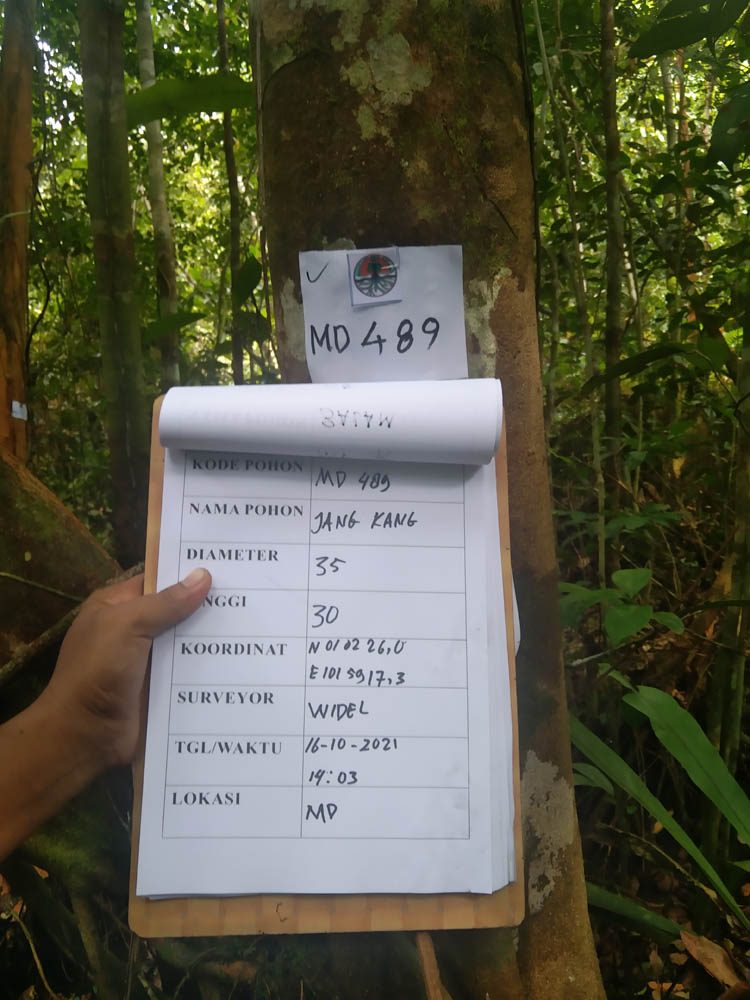 MD 489
KODE POHON MD 489
NAMA POHON JANG KANG
DIAMETER 35
NGGI 30
KOORDINAT N 01 02 26,0
E 101 59 17,3
SURVEYOR WIDEL
TGL/WAKTU 16-10-2021
14:03
LOKASI MD